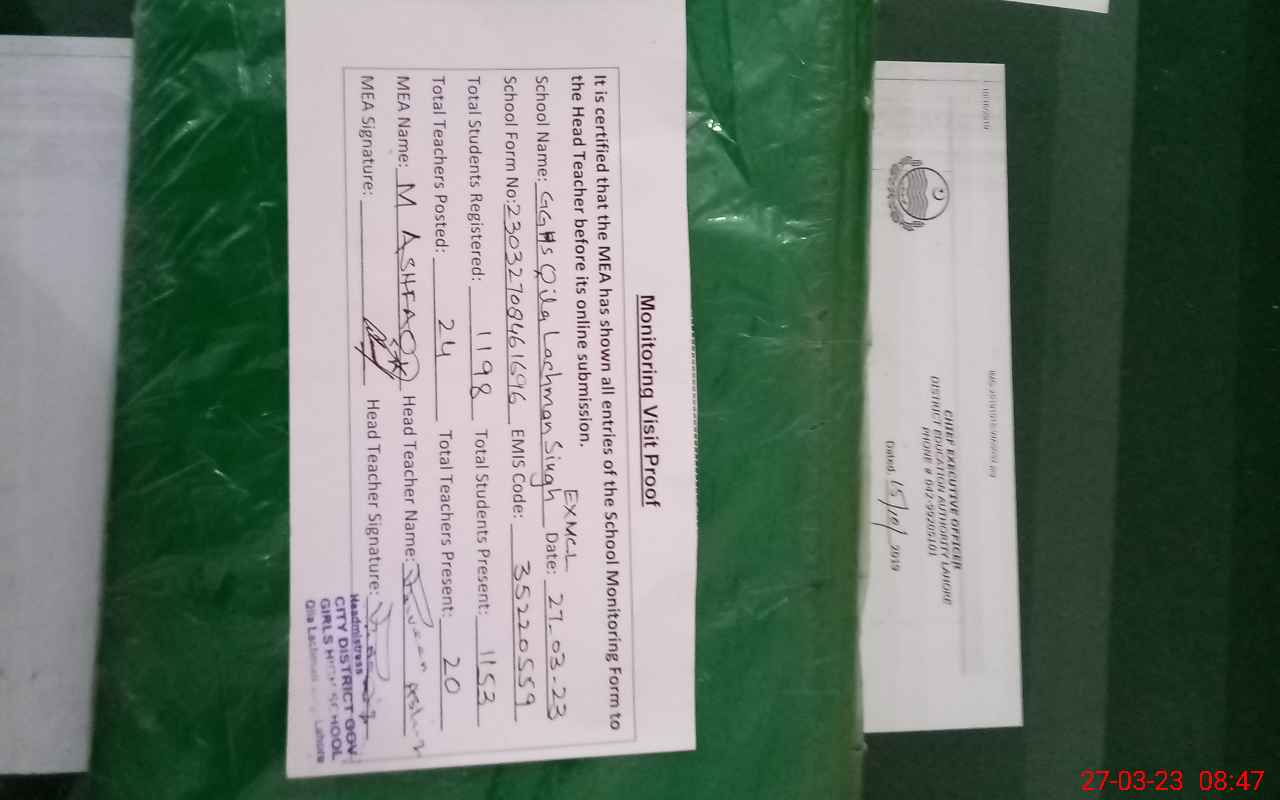 Monitoring Visit Proof
It is certified that the MEA has shown all entries of the School Monitoring Form to
the Head Teacher before its online submission.
EXMCL
School Name: GGHS Qila Lachman Singh Date: 27.03.23
School Form No: 23032708461696 EMIS Code: 35220559
Total Students Registered: 1198 Total Students Present: 1153
Total Teachers Posted: 24 Total Teachers Present: 20
MEA Name: M ASHFAQ Head Teacher Name:
MEA Signature: Head Teacher Signature:
Headmistress
CITY DISTRICT GOV
GIRLS HIGH SCHOOL
Qila Lachman Lahore
CHIEF EXECUTIVE OFFICER
DISTRICT EDUCATION AUTHORITY LAHORE
PHONE # 042-99205101
Dated. 15/10/ 2019
27-03-23 08:47